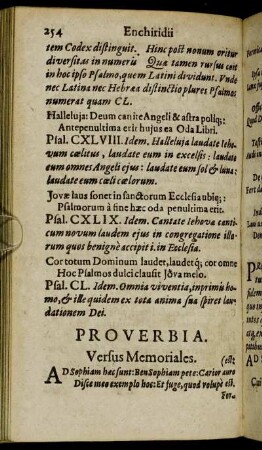 254 Enchiridii
tem Codex distinguit. Hinc post nonum oritur
diversitas in numerũ Quæ tamen rursus coit
in hoc ipso Psalmo, quem Latini dividunt. Vnde
nec Latina nec Hebræa distinctio plures Psalmos
numerat quam CL.
Halleluja: Deum canite Angeli & astra poliq;:
Antepenultima erit hujus ea Oda Libri.
Psal. CXLVIII. Idem. Halleluja laudate Ieho-
vam cælitus, laudate eum in excelsis: laudate
eum omnes Angeli ejus: laudate eum sol & luna:
laudate eum cæli cælorum.
Jovæ laus sonet in sanctorum Ecclesia ubiq;:
Psalmorum à fine hæc oda penultima erit.
Psal. CXLIX. Idem. Cantate Iehova canti-
cum novum laudem ejus in congregatione illo-
rum quos benignè accipit i. in Ecclesia.
Cor totum Dominum laudet, laudetq́; cor omne
Hoc Psalmos dulci clausit Jova melo.
Psal. CL. Idem. Omnia viventia, imprimis ho-
mo, & ille quidem ex tota anima sua spiret lau-
dationem Dei.
PROVERBIA.
Versus Memoriales.
(est:
AD Sophiam hæc sunt: Ben Sophiam pete: Carior auro
Disce meo exemplo hoc: Et fuge, quod volupè est.
Fora